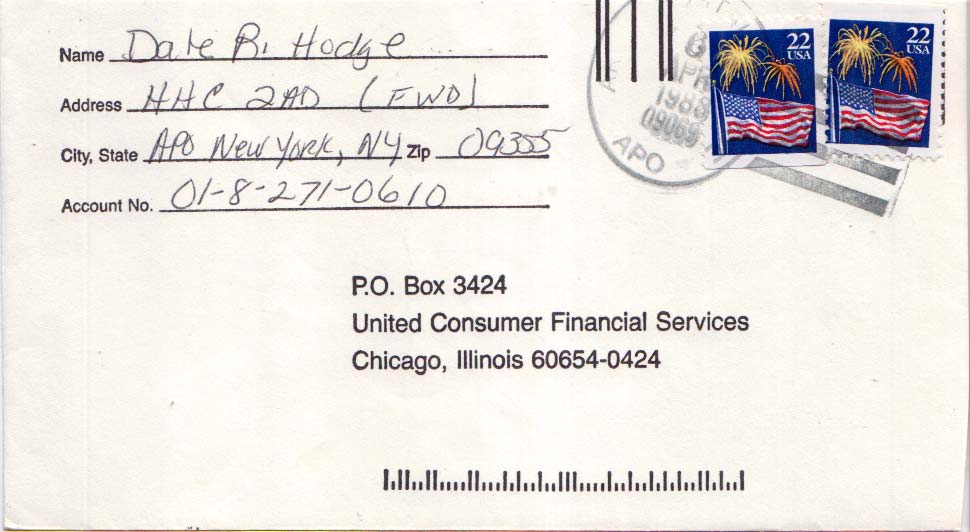 Name Dale R. Hodge
Address HHC 2AD (FWD)
City, State APO New York, NY Zip 09355
Account No. 01-8-271-0610
APR
1988
09069
APO
22
USA
22
USA
P.O. Box 3424
United Consumer Financial Services
Chicago, Illinois 60654-0424